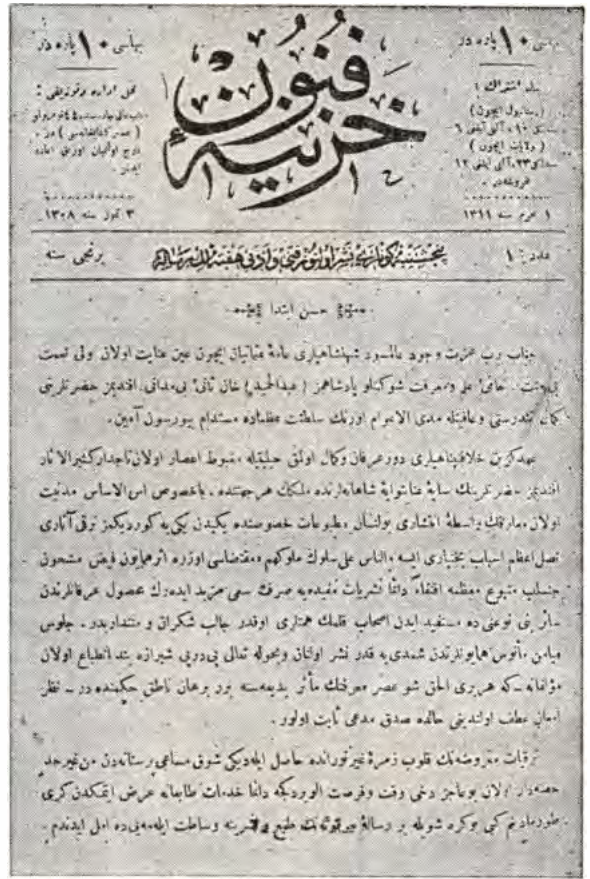 بهاسی ١٠ پاره در
خزینهٔ فنون
بهاسی ١٠ پاره در
سنه لك اشتراك
(استانبول ایچون)
آلتی آیلغی ٦
(ولایات ایچون)
سنه لكی ٢٣، آلتی آیلغی ١٢
غروشدر.
١ محرم سنه ١٣١١
محل اداره وتوزیعی :
(عصر كتابخانه سی) در.
درج اولنمیان اوراق اعاده
ایدلمز.
٣ تموز سنه ١٣٠٨
عدد : ١
پنجشنبه كونلری نشر اولنور فنی وادبی هفته لق رساله
برنجی سنه
حسن ابتدا
جناب رب عزت وجود عالمسود شهنشاهیاری عامهٔ عثمانیان ایچون عین عنایت اولان ولی نعمت
بی منت، حامیٔ علم ومعرفت شوكتلو پادشاهمز (عبدالحمید) خان ثانیٔ بی مدانی افندیمز حضرتلرینی
كمال تندرستی وعافیتله مدی الاعوام اورنك سلطنت عظماده مستدام بیورسون آمین.
عهد كزین خلافتپناهیاری دور عرفان وكمال اولمق حیثیتیله مغبوط اعصار اولان تاجدار كثیرالاثار
افندیمز حضرتلرینك سایهٔ عنایتوایهٔ شاهانه لرنده ملكك هر جهتنده، باخصوص اس الاساس مدنیت
اولان معارفك واسطهٔ انتشاری بولنان مطبوعات خصوصنده یكیدن یكی یه كوردیكمز ترقی آثاری
اعظم اسباب بختیاری ایسه والناس علی سلوك ملوكهم مقتضاسی اوزره اثر همایون فیض مشحون
متبوع معظمه اقتفاءً دائما نشریات مفیده یه صرف سعی مزید ایده رك محصول عرفانلرندن
بنی نوعنی ده مستفید ایدن اصحاب قلمك همتلری اوقدر جالب شكران و منتداریدر. جلوس
میامن مأنوس همایونلرندن شمدی یه قدر نشر اولنان وبحوله تعالی پی درپی شیرازه بند انطباع اولان
مؤلفاتـه كه هر بری الحق شو عصر معرفتك مآثر بدیعه سنه برر برهان ناطق حكمنده در ــ نظر
امعان عطف اولندیغی حالده صدق مدعی ثابت اولور.
ترقیات معروضه نك قلوب زمرهٔ غیرتورانده حاصل ایله دیكی شوق مساعی پرستانه دن من غیر حد
حصه دار اولان بو عاجز دخی وقت وفرصت الویردكجه دائما خدمات طابعانه عرض ایتمكدن كری
طورمادیغم كبی بو كره شویله بر رسالهٔ موقوته نك طبع و نشرینه وساطت ایله مه یی ده امل ایدندم.